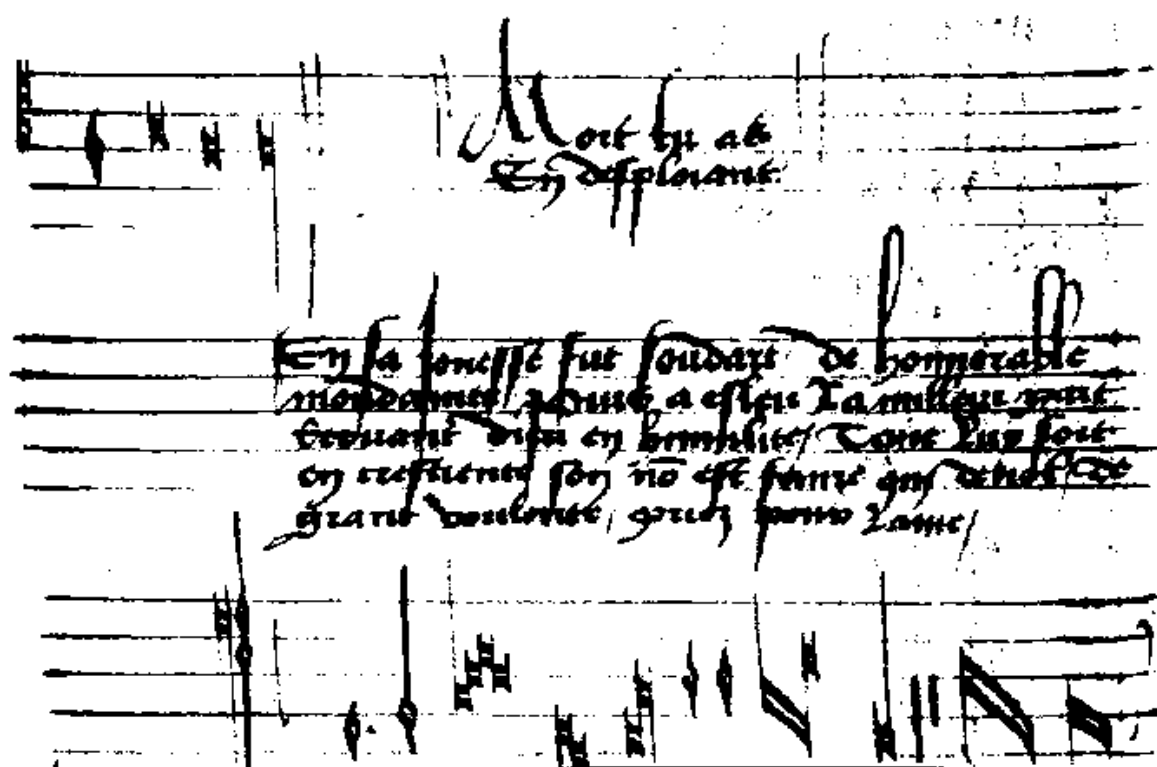 Mort tu as
En desploiant
En sa ionesse fut soudart de honnerable
mondanite / puis a esleu La milleur part
Servant dieu en humilite / Tant luy soit
en crestiente son nō est fame De
grant voulente / priez pour Lame /